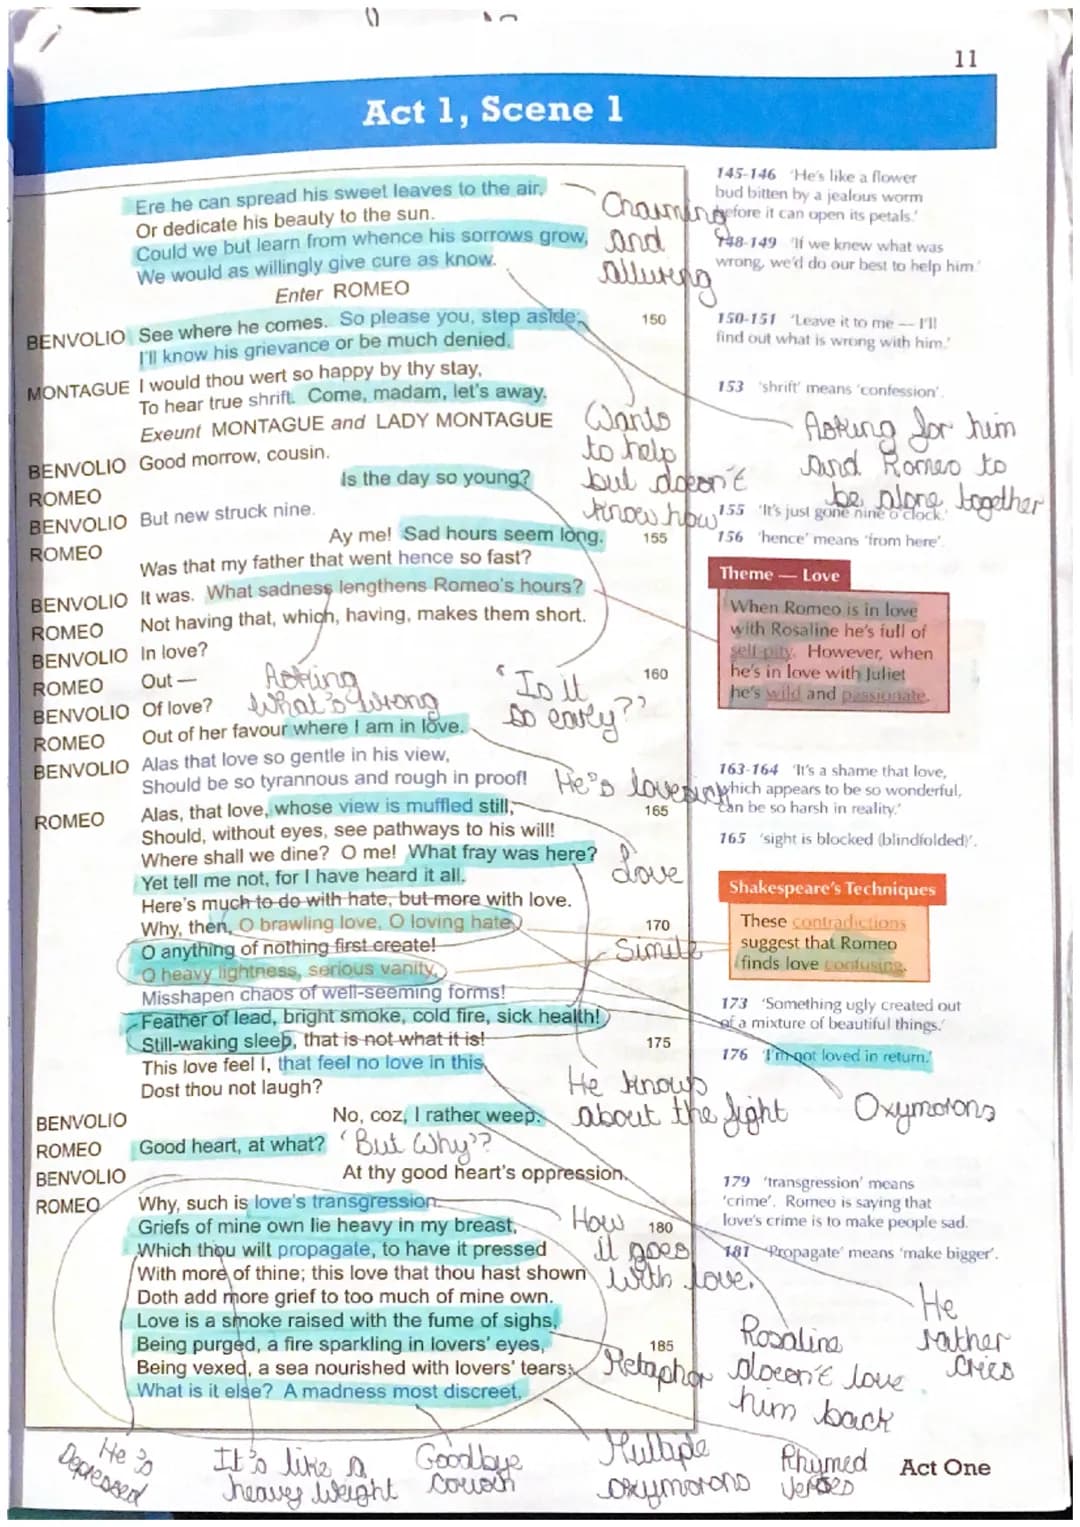 11
Act 1, Scene 1
Ere he can spread his sweet leaves to the air,
Or dedicate his beauty to the sun.
Could we but learn from whence his sorrows grow,
We would as willingly give cure as know.
Enter ROMEO
BENVOLIO See where he comes. So please you, step aside; 150
I'll know his grievance or be much denied.
MONTAGUE I would thou wert so happy by thy stay,
To hear true shrift. Come, madam, let's away.
Exeunt MONTAGUE and LADY MONTAGUE
BENVOLIO Good morrow, cousin.
ROMEO Is the day so young?
BENVOLIO But new struck nine.
ROMEO Ay me! Sad hours seem long. 155
Was that my father that went hence so fast?
BENVOLIO It was. What sadness lengthens Romeo's hours?
ROMEO Not having that, which, having, makes them short.
BENVOLIO In love?
ROMEO Out — 160
BENVOLIO Of love?
ROMEO Out of her favour where I am in love.
BENVOLIO Alas that love so gentle in his view,
Should be so tyrannous and rough in proof!
ROMEO Alas, that love, whose view is muffled still, 165
Should, without eyes, see pathways to his will!
Where shall we dine? O me! What fray was here?
Yet tell me not, for I have heard it all.
Here's much to do with hate, but more with love.
Why, then, O brawling love, O loving hate, 170
O anything of nothing first create!
O heavy lightness, serious vanity,
Misshapen chaos of well-seeming forms!
Feather of lead, bright smoke, cold fire, sick health!
Still-waking sleep, that is not what it is! 175
This love feel I, that feel no love in this.
Dost thou not laugh?
BENVOLIO No, coz, I rather weep.
ROMEO Good heart, at what? 'But Why'?
BENVOLIO At thy good heart's oppression.
ROMEO Why, such is love's transgression.
Griefs of mine own lie heavy in my breast, 180
Which thou wilt propagate, to have it pressed
With more of thine; this love that thou hast shown
Doth add more grief to too much of mine own.
Love is a smoke raised with the fume of sighs,
Being purged, a fire sparkling in lovers' eyes, 185
Being vexed, a sea nourished with lovers' tears;
What is it else? A madness most discreet,
Charming
and
alluring
Wants
to help
but doesn't
know how
Asking
What's wrong
'Is it
so early?'
He's lovesick
Love
Simile
He knows
about the fight
How
it goes
with love.
Metaphor
145-146 'He's like a flower
bud bitten by a jealous worm
before it can open its petals.'
148-149 'If we knew what was
wrong, we'd do our best to help him.'
150-151 'Leave it to me — I'll
find out what is wrong with him.'
153 'shrift' means 'confession'.
Asking for him
and Romeo to
be alone together
155 'It's just gone nine o'clock.'
156 'hence' means 'from here'.
Theme — Love
When Romeo is in love
with Rosaline he's full of
self-pity. However, when
he's in love with Juliet
he's wild and passionate.
163-164 'It's a shame that love,
which appears to be so wonderful,
can be so harsh in reality.'
165 'sight is blocked (blindfolded)'.
Shakespeare's Techniques
These contradictions
suggest that Romeo
finds love confusing.
173 'Something ugly created out
of a mixture of beautiful things.'
176 'I'm not loved in return.'
Oxymorons
179 'transgression' means
'crime'. Romeo is saying that
love's crime is to make people sad.
181 'Propagate' means 'make bigger'.
He
rather
cries
Rosaline
doesn't love
him back
He's
Depressed
It's like a
heavy weight
Goodbye
cousin
Multiple
oxymorons
Rhymed
verses
Act One